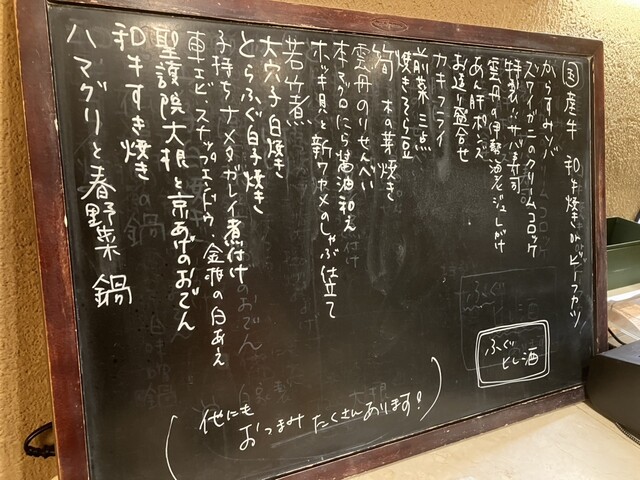 国産牛 和牛焼き or ビーフカツ
からすみソバ
ズワイガニのクリームコロッケ
特製!! サバ寿司
雲丹の伊勢海老ジュレがけ
あん肝ポン酢
お造り盛合せ
カキフライ
前菜三点
焼きそら豆
筍 木の芽焼き
雲丹のりせんべい
本マグロにら醤油和え
ホッキ貝と新ワカメのしゃぶ仕立て
若竹煮
大穴子白焼き
とらふぐ白子焼き
子持ちナメタガレイ煮付け
車エビ・スナップエンドウ・金柑の白あえ
聖護院大根と京あげのおでん
和牛すき焼き
ハマグリと春野菜鍋
ふぐ
ヒレ酒
(他にも
おつまみたくさんあります!)